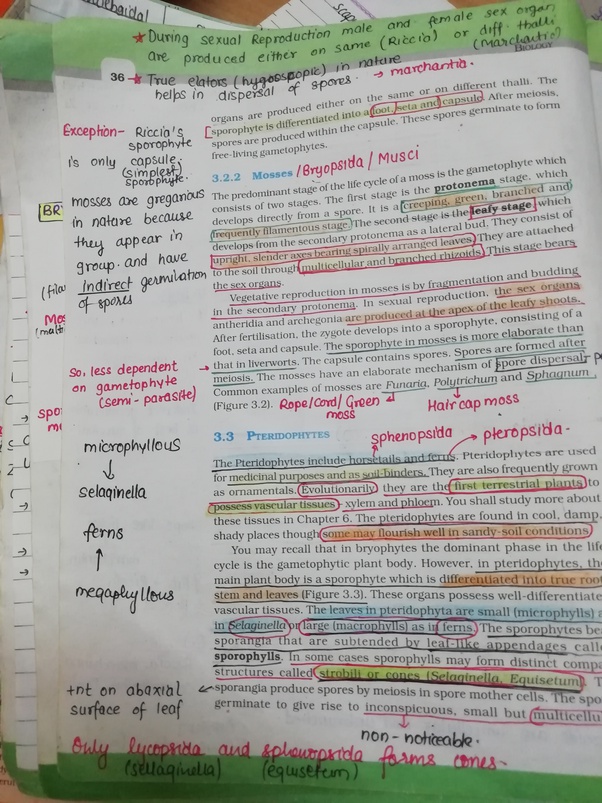 ★ During sexual Reproduction male and female sex organ
are produced either on same (Riccia) or diff. thalli
(Marchantia)
BIOLOGY
36 ★ True elators (hygoospopic) in nature
helps in dispersal of spores. → marchantia.
organs are produced either on the same or on different thalli. The
sporophyte is differentiated into a foot, seta and capsule. After meiosis,
spores are produced within the capsule. These spores germinate to form
free-living gametophytes.
Exception- Riccia's
sporophyte
is only capsule.
(simplest)
sporophyte.
3.2.2 Mosses /Bryopsida / Musci
The predominant stage of the life cycle of a moss is the gametophyte which
consists of two stages. The first stage is the protonema stage, which
develops directly from a spore. It is a creeping, green, branched and
frequently filamentous stage. The second stage is the leafy stage, which
develops from the secondary protonema as a lateral bud. They consist of
upright, slender axes bearing spirally arranged leaves. They are attached
to the soil through multicellular and branched rhizoids. This stage bears
the sex organs.
mosses are gregarious
in nature because
they appear in
group. and have
Indirect germination
of spores
Vegetative reproduction in mosses is by fragmentation and budding
in the secondary protonema. In sexual reproduction, the sex organs
antheridia and archegonia are produced at the apex of the leafy shoots.
After fertilisation, the zygote develops into a sporophyte, consisting of a
foot, seta and capsule. The sporophyte in mosses is more elaborate than
that in liverworts. The capsule contains spores. Spores are formed after
meiosis. The mosses have an elaborate mechanism of spore dispersal.
Common examples of mosses are Funaria, Polytrichum and Sphagnum
(Figure 3.2). Rope/Cord/Green
moss
Hair cap moss
So, less dependent
on gametophyte
(semi-parasite)
3.3 PTERIDOPHYTES
sphenopsida
pteropsida.
The Pteridophytes include horsetails and ferns. Pteridophytes are used
for medicinal purposes and as soil-binders. They are also frequently grown
as ornamentals. Evolutionarily, they are the first terrestrial plants to
possess vascular tissues – xylem and phloem. You shall study more about
these tissues in Chapter 6. The pteridophytes are found in cool, damp,
shady places though some may flourish well in sandy-soil conditions.
microphyllous
↓
selaginella
ferns
↑
megaphyllous
You may recall that in bryophytes the dominant phase in the life
cycle is the gametophytic plant body. However, in pteridophytes, the
main plant body is a sporophyte which is differentiated into true root
stem and leaves (Figure 3.3). These organs possess well-differentiate
vascular tissues. The leaves in pteridophyta are small (microphylls) a
in Selaginella or large (macrophylls) as in ferns. The sporophytes be
sporangia that are subtended by leaf-like appendages calle
sporophylls. In some cases sporophylls may form distinct compa
structures called strobili or cones (Selaginella, Equisetum). T
sporangia produce spores by meiosis in spore mother cells. The spo
germinate to give rise to inconspicuous, small but multicellu
+nt on abaxial
surface of leaf
non-noticeable.
Only lycopsida and sphenopsida forms cones.
(sellaginella) (equisetum)